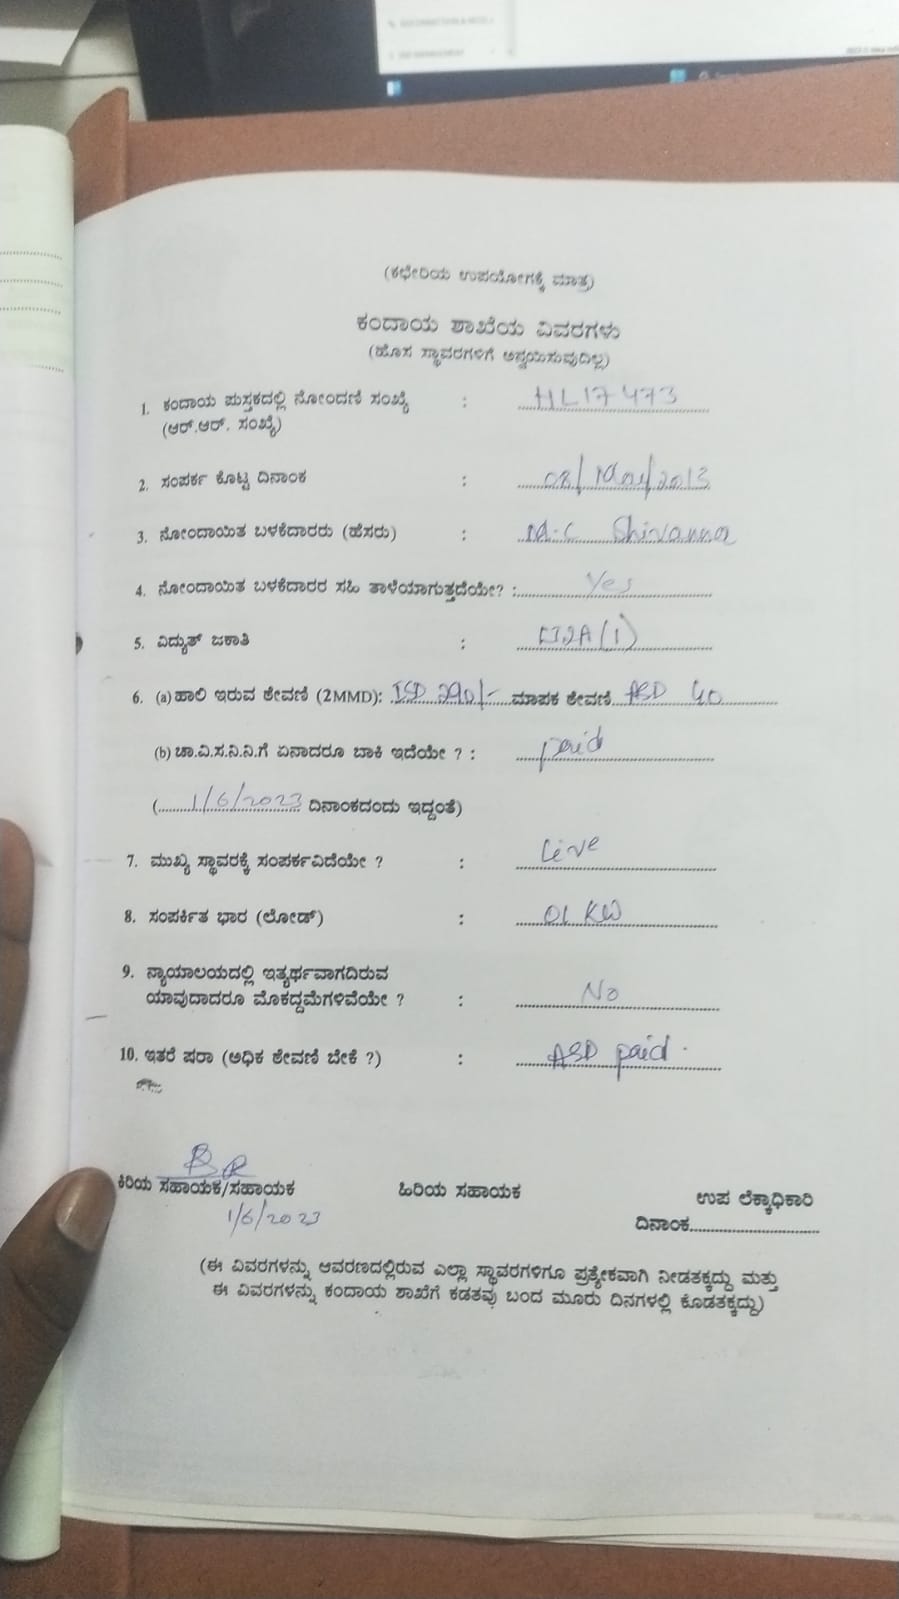 (ಕಛೇರಿಯ ಉಪಯೋಗಕ್ಕೆ ಮಾತ್ರ)
ಕಂದಾಯ ಶಾಖೆಯ ವಿವರಗಳು
(ಹೊಸ ಸ್ಥಾವರಗಳಿಗೆ ಅನ್ವಯಿಸುವುದಿಲ್ಲ)
1. ಕಂದಾಯ ಪುಸ್ತಕದಲ್ಲಿ ನೋಂದಣಿ ಸಂಖ್ಯೆ : HL17473
(ಆರ್.ಆರ್. ಸಂಖ್ಯೆ)
2. ಸಂಪರ್ಕ ಕೊಟ್ಟ ದಿನಾಂಕ : 08/Mar/2013
3. ನೋಂದಾಯಿತ ಬಳಕೆದಾರರು (ಹೆಸರು) : M.C Shivanna
4. ನೋಂದಾಯಿತ ಬಳಕೆದಾರರ ಸಹಿ ತಾಳೆಯಾಗುತ್ತದೆಯೇ? : Yes
5. ವಿದ್ಯುತ್ ಜಕಾತಿ : LT2A(1)
6. (a) ಹಾಲಿ ಇರುವ ಠೇವಣಿ (2MMD): ISD 290/- ಮಾಪಕ ಠೇವಣಿ ASD 40
(b) ಚಾ.ವಿ.ಸ.ನಿ.ನಿ.ಗೆ ಏನಾದರೂ ಬಾಕಿ ಇದೆಯೇ ? : paid
(1/6/2023 ದಿನಾಂಕದಂದು ಇದ್ದಂತೆ)
7. ಮುಖ್ಯ ಸ್ಥಾವರಕ್ಕೆ ಸಂಪರ್ಕವಿದೆಯೇ ? : Live
8. ಸಂಪರ್ಕಿತ ಭಾರ (ಲೋಡ್) : 01 KW
9. ನ್ಯಾಯಾಲಯದಲ್ಲಿ ಇತ್ಯರ್ಥವಾಗದಿರುವ
ಯಾವುದಾದರೂ ಮೊಕದ್ದಮೆಗಳಿವೆಯೇ ? : No
10. ಇತರೆ ಷರಾ (ಅಧಿಕ ಠೇವಣಿ ಬೇಕೆ ?) : ASD paid.
ಕಿರಿಯ ಸಹಾಯಕ/ಸಹಾಯಕ ಹಿರಿಯ ಸಹಾಯಕ ಉಪ ಲೆಕ್ಕಾಧಿಕಾರಿ
1/6/2023 ದಿನಾಂಕ
(ಈ ವಿವರಗಳನ್ನು ಆವರಣದಲ್ಲಿರುವ ಎಲ್ಲಾ ಸ್ಥಾವರಗಳಿಗೂ ಪ್ರತ್ಯೇಕವಾಗಿ ನೀಡತಕ್ಕದ್ದು ಮತ್ತು
ಈ ವಿವರಗಳನ್ನು ಕಂದಾಯ ಶಾಖೆಗೆ ಕಡತವು ಬಂದ ಮೂರು ದಿನಗಳಲ್ಲಿ ಕೊಡತಕ್ಕದ್ದು)